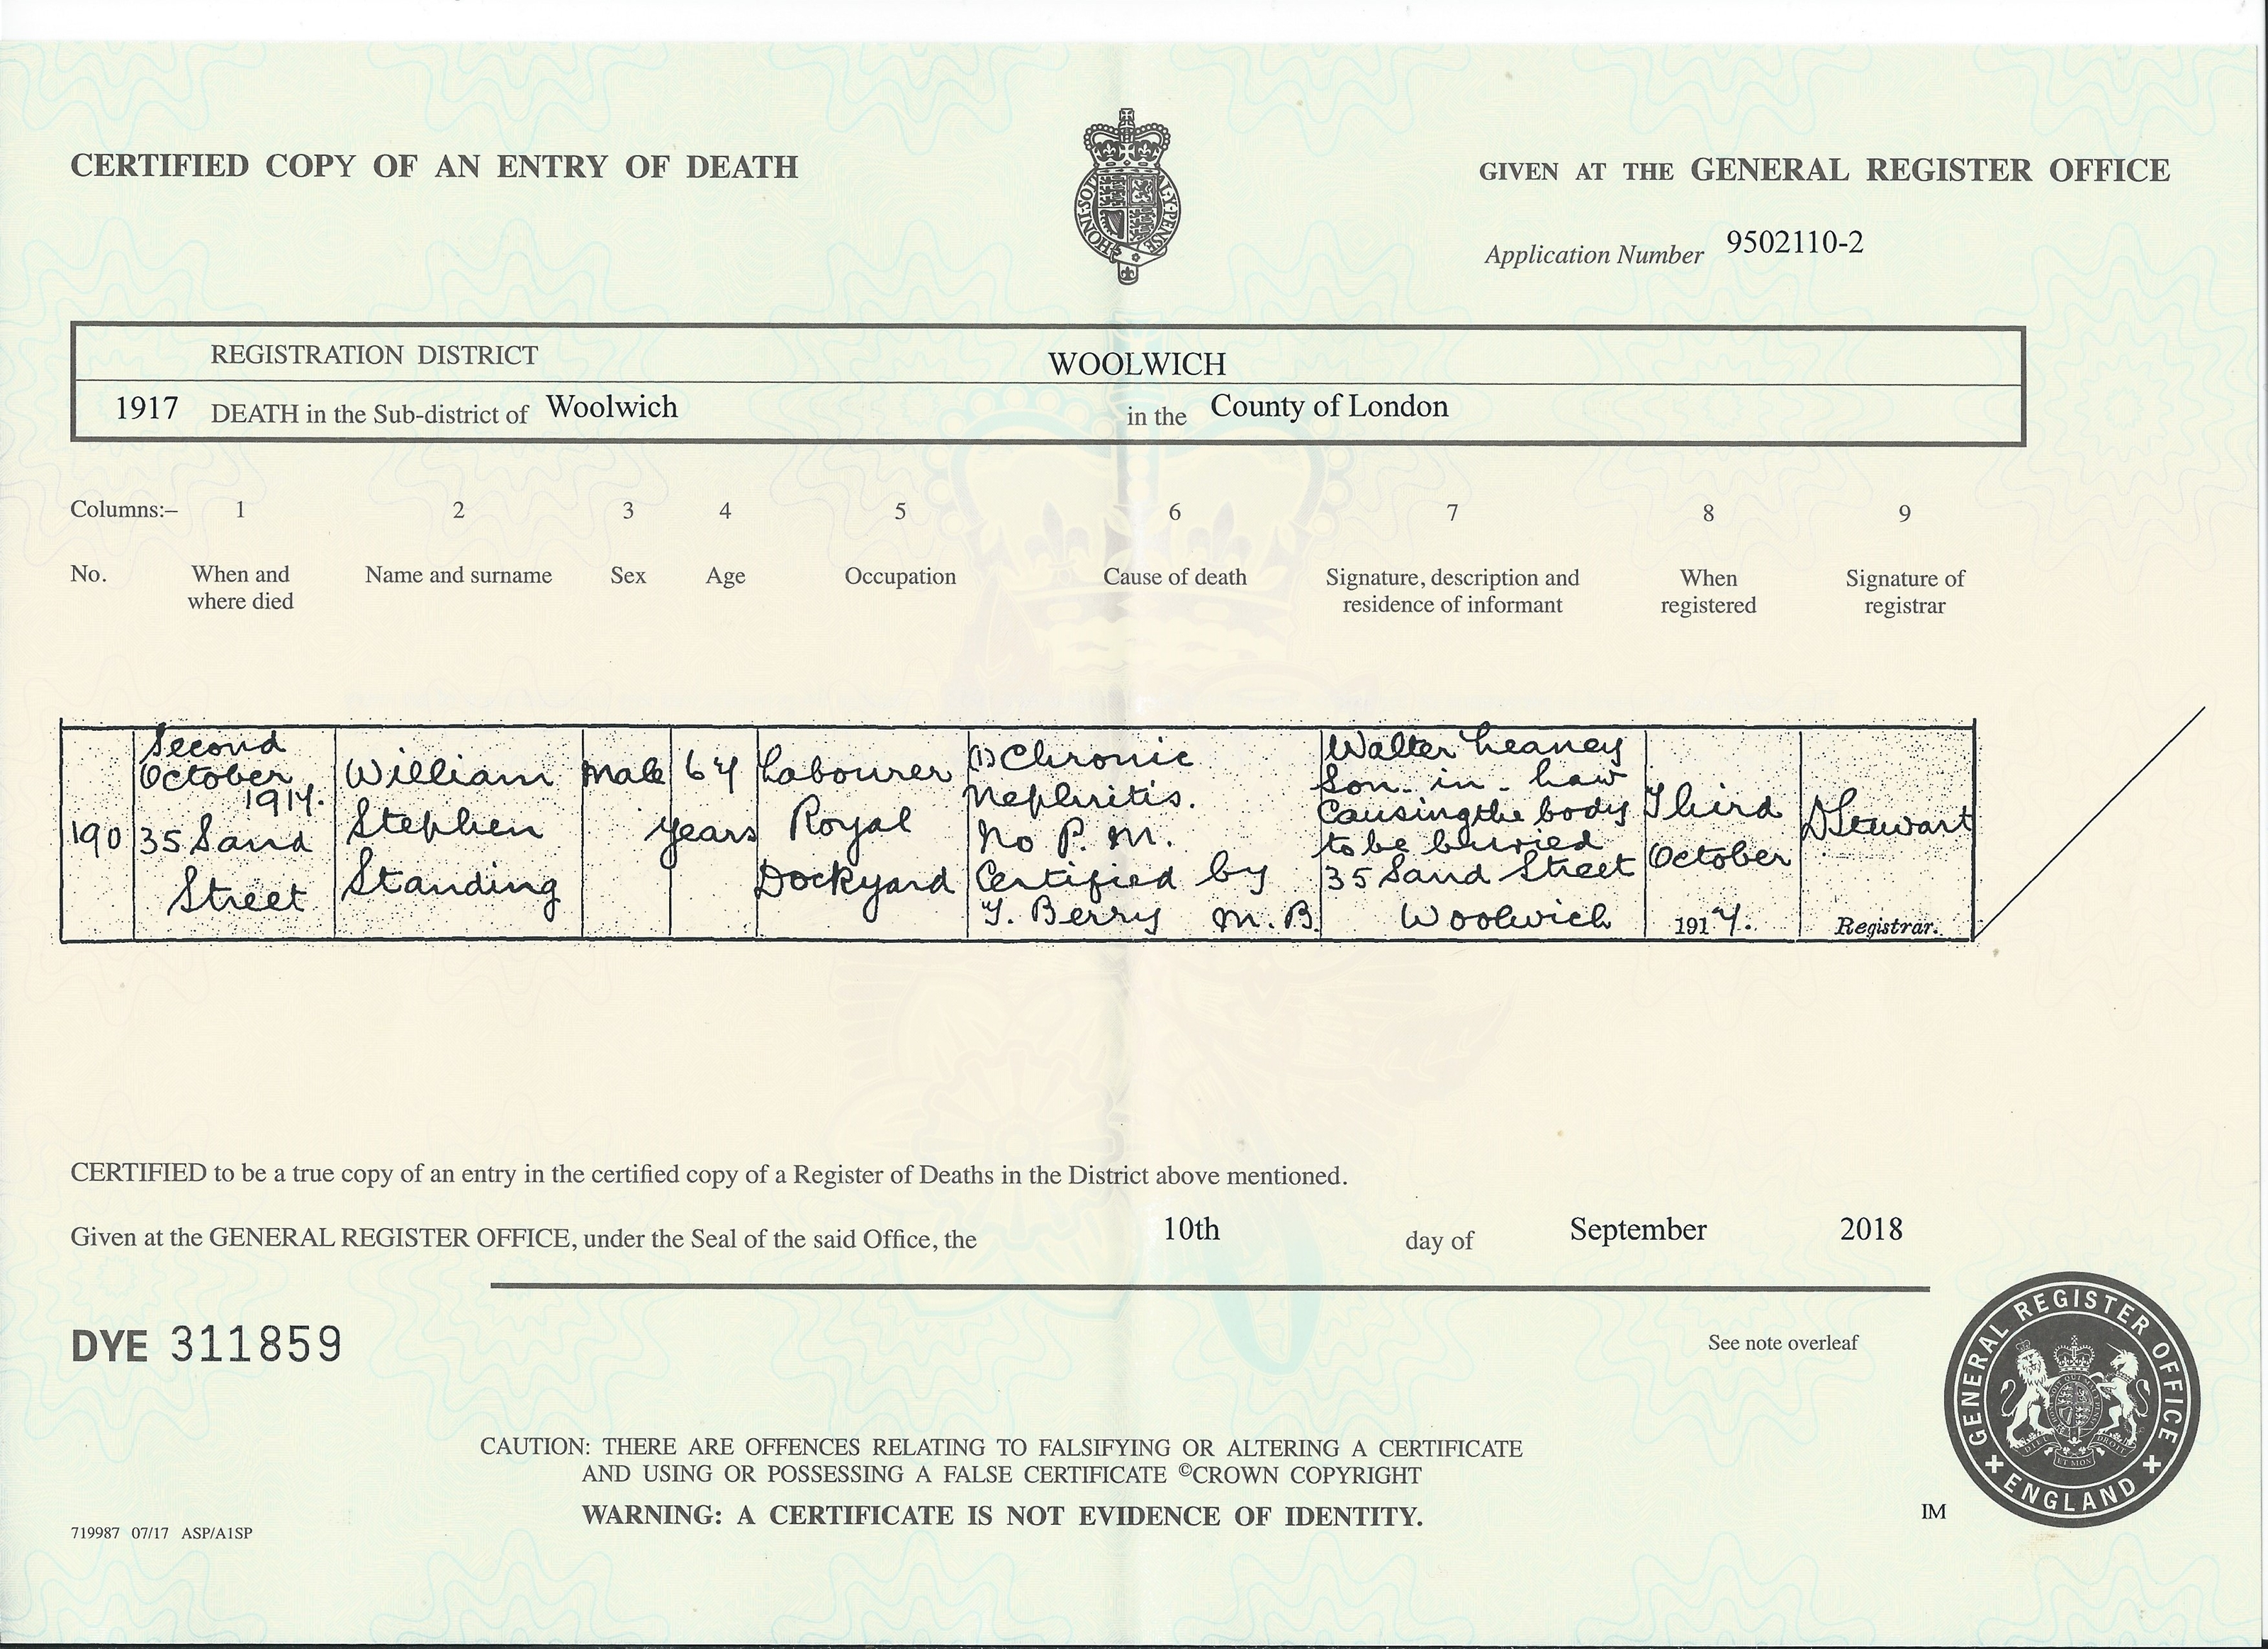 CERTIFIED COPY OF AN ENTRY OF DEATH
GIVEN AT THE GENERAL REGISTER OFFICE
Application Number 9502110-2
REGISTRATION DISTRICT WOOLWICH
1917 DEATH in the Sub-district of Woolwich in the County of London
Columns:– 1 2 3 4 5 6 7 8 9
No.
When and
where died
Name and surname
Sex
Age
Occupation
Cause of death
Signature, description and
residence of informant
When
registered
Signature of
registrar
190
Second
October
1917.
35 Sand
Street
William
Stephen
Standing
Male
67
years
Labourer
Royal
Dockyard
(1) Chronic
Nephritis.
No P. M.
Certified by
T. Berry M. B.
Walter Leaney
Son-in-Law
Causing the body
to be buried
35 Sand Street
Woolwich
Third
October
1917.
D Stewart
Registrar.
CERTIFIED to be a true copy of an entry in the certified copy of a Register of Deaths in the District above mentioned.
Given at the GENERAL REGISTER OFFICE, under the Seal of the said Office, the 10th day of September 2018
DYE 311859
See note overleaf
CAUTION: THERE ARE OFFENCES RELATING TO FALSIFYING OR ALTERING A CERTIFICATE
AND USING OR POSSESSING A FALSE CERTIFICATE ©CROWN COPYRIGHT
WARNING: A CERTIFICATE IS NOT EVIDENCE OF IDENTITY.
719987 07/17 ASP/A1SP
IM
GENERAL REGISTER OFFICE
ENGLAND